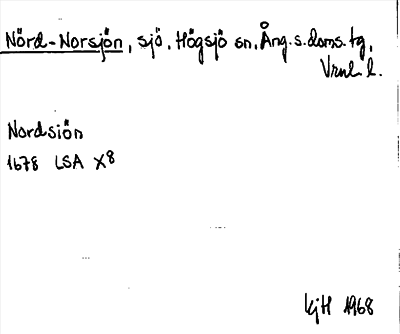 Nörd-Norsjön, sjö, Högsjö sn, Ång.s.doms.tg,
Vrnl. l.
Nordsiön
1678 LSA X8
KjH 1968